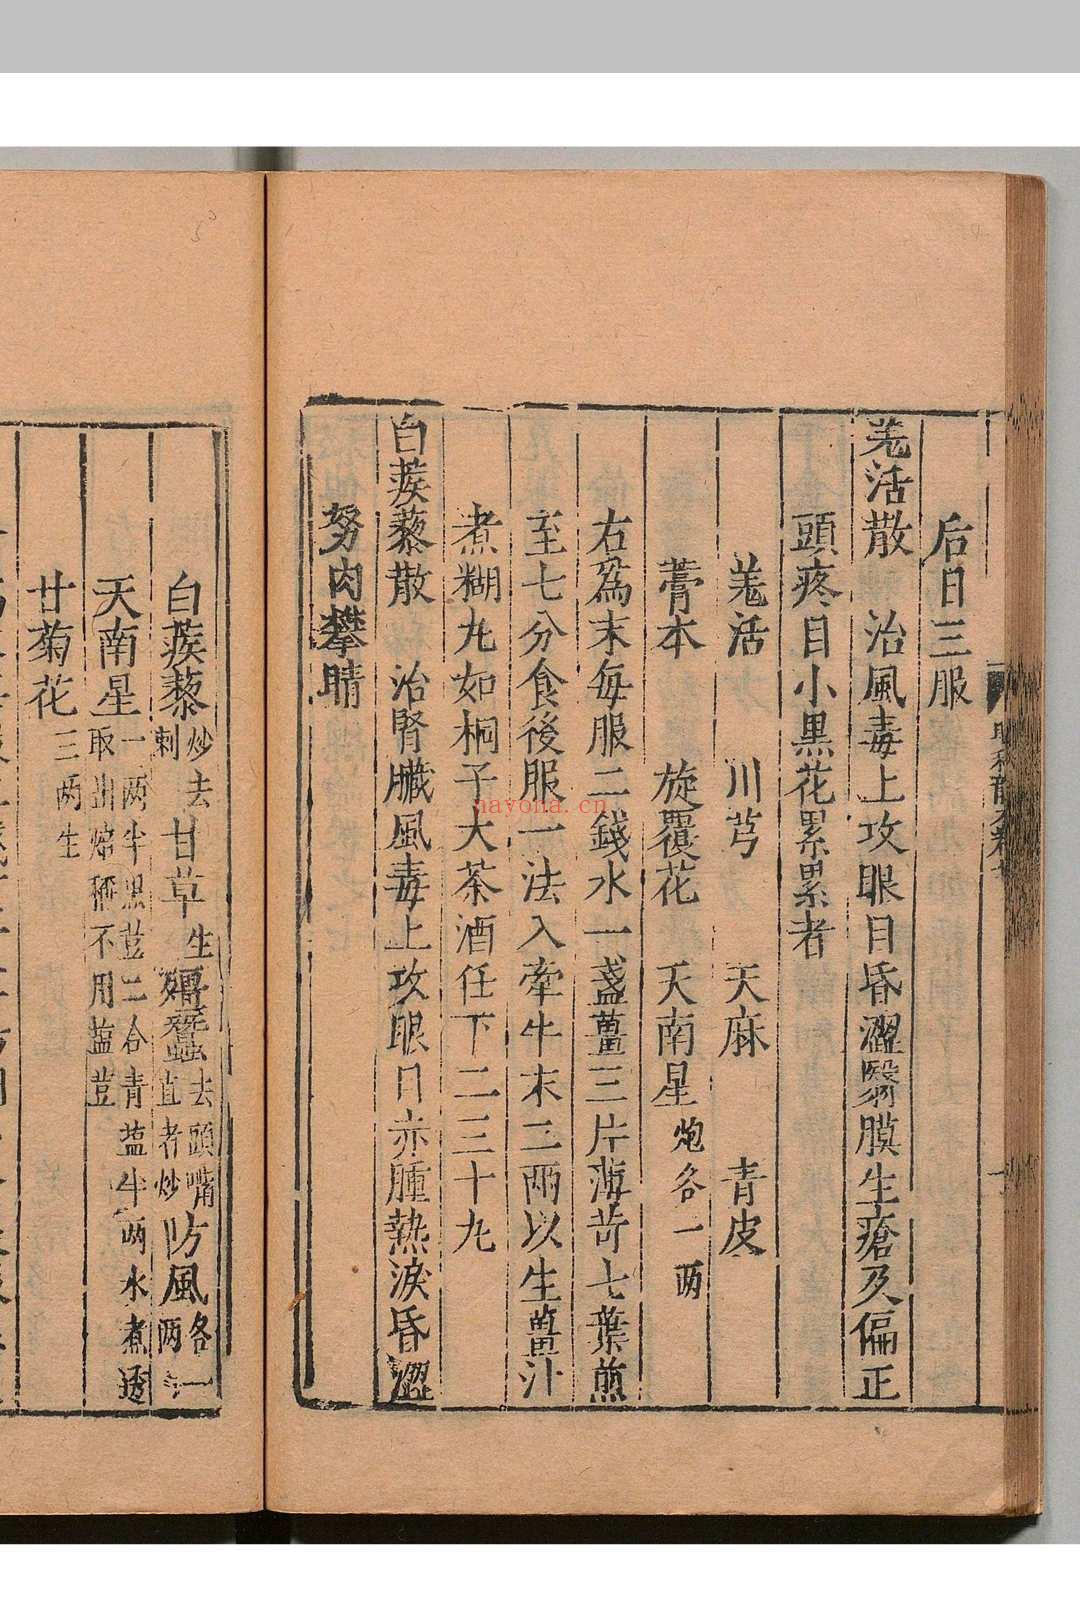 后日三服
羗活散　治風毒上攻眼目昏澀翳膜生瘡及偏正
頭疼目小黒花累累者
羗活　川芎　天麻　青皮
藁本　旋覆花　天南星炮各一两
右爲末每服二錢水一盞薑三片薄苛七葉煎
至七分食後服一法入牽牛末二兩以生薑汁
煮糊丸如桐子大茶酒任下二三十丸
白蒺藜散　治腎臟風毒上攻眼目赤腫熱淚昏澀
努肉攀睛
白蒺藜炒去刺甘草生殭蠶去頭嘴直者炒防風各一两
天南星一两半黒荳二合青盐半两水煮透取出焙不用盐荳
甘菊花三两生
nayona.cn